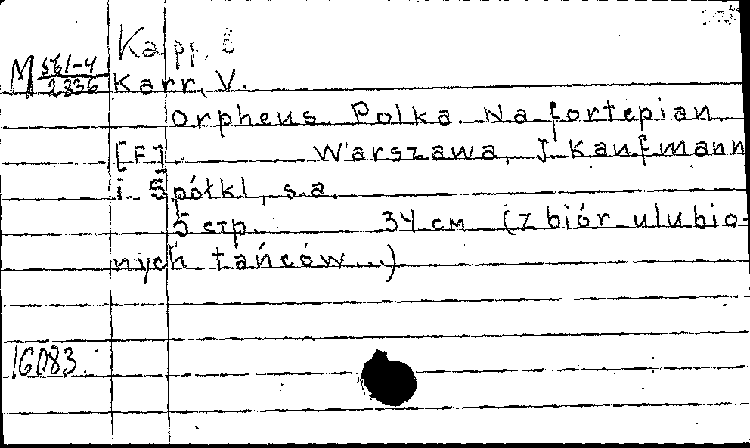 Карр,
M 561-4
2336
Karr, V.
Orpheus Polka. Na fortepian
[F] Warszawa, J. Kaufmann
i Spółkl, s.a.
5 стр. 34 см (Zbiór ulubio-
nych tańców...)
16083.